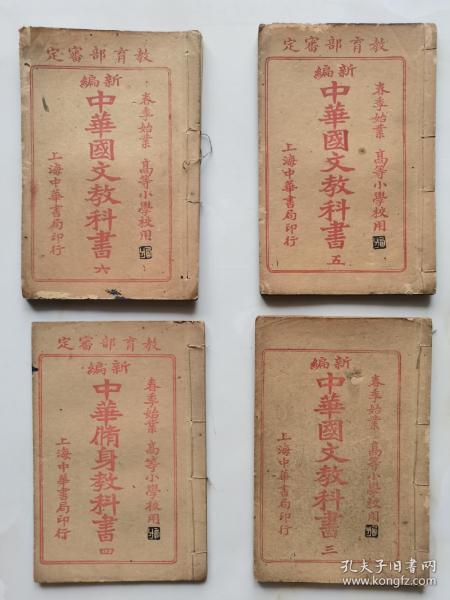 教育部審定
新編
春季始業 高等小學校用
中華國文教科書 六
上海中華書局印行
教育部審定
新編
春季始業 高等小學校用
中華國文教科書 五
上海中華書局印行
教育部審定
新編
春季始業 高等小學校用
中華脩身教科書 四
上海中華書局印行
新編
春季始業 高等小學校用
中華國文教科書 三
上海中華書局印行
孔夫子旧书网